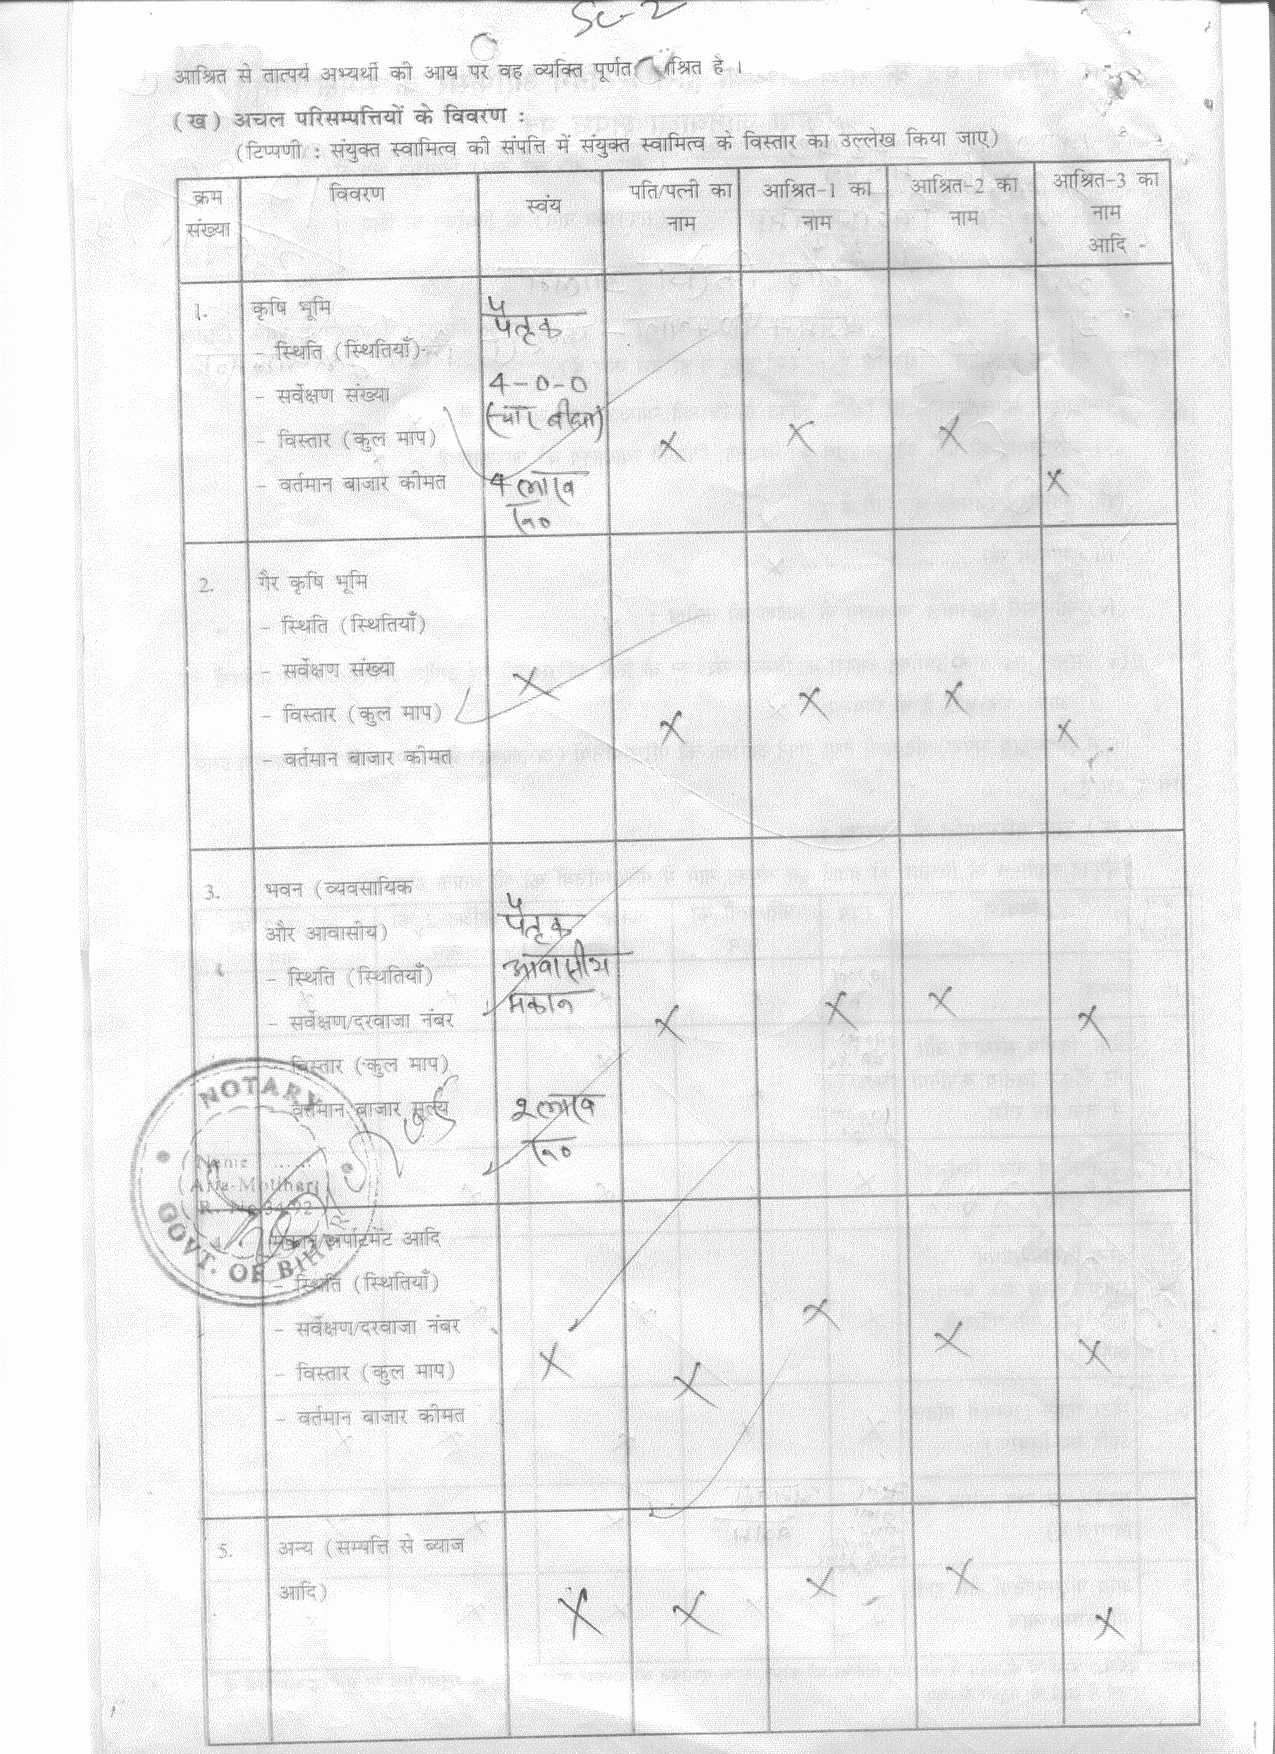 Sc-2
आश्रित से तात्पर्य अभ्यर्थी की आय पर वह व्यक्ति पूर्णत श्रित है ।
(ख) अचल परिसम्पत्तियों के विवरण :
(टिप्पणी : संयुक्त स्वामित्व की संपत्ति में संयुक्त स्वामित्व के विस्तार का उल्लेख किया जाए)
क्रम संख्या
विवरण
स्वंय
पति/पत्नी का नाम
आश्रित-1 का नाम
आश्रित-2 का नाम
आश्रित-3 का नाम आदि -
1.
कृषि भूमि
- स्थिति (स्थितियाँ)-
- सर्वेक्षण संख्या
- विस्तार (कुल माप)
- वर्तमान बाजार कीमत
पैतृक
4-0-0
(चार बीघा)
4 लाख
रू०
X X X X
2.
गैर कृषि भूमि
- स्थिति (स्थितियाँ)
- सर्वेक्षण संख्या
- विस्तार (कुल माप)
- वर्तमान बाजार कीमत
X X X X X
3.
भवन (व्यवसायिक
और आवासीय)
- स्थिति (स्थितियाँ)
- सर्वेक्षण/दरवाजा नंबर
- विस्तार (कुल माप)
- वर्तमान बाजार मूल्य
पैतृक
आवासीय
मकान
2 लाख
रू०
X X X X
NOTARY
(Name ......
GOVT. OF BIHAR
4.
मकान/अपार्टमेंट आदि
- स्थिति (स्थितियाँ)
- सर्वेक्षण/दरवाजा नंबर
- विस्तार (कुल माप)
- वर्तमान बाजार कीमत
X X X X X
5.
अन्य (सम्पत्ति से ब्याज
आदि)
X X X X X